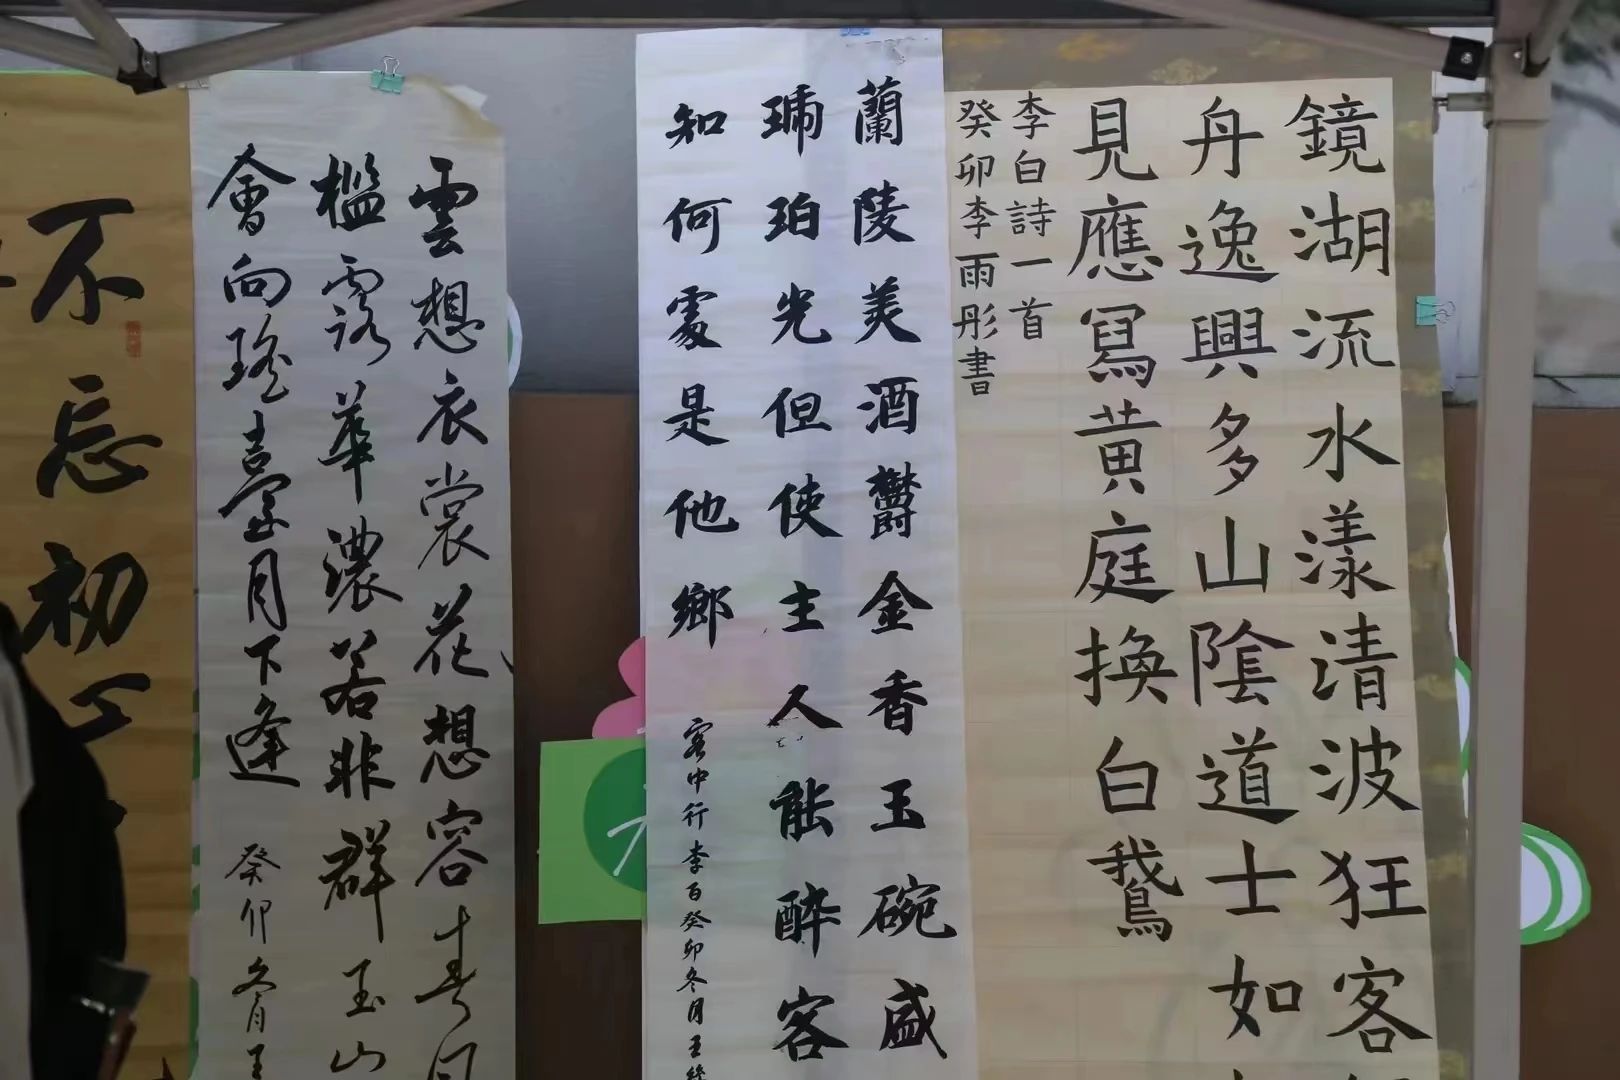 鏡湖流水漾清波狂客
舟逸興多山陰道士如
見應寫黃庭換白鵝
李白詩一首
癸卯李雨彤書
蘭陵美酒鬱金香玉碗盛
琥珀光但使主人能醉客
知何處是他鄉
客中行李白癸卯冬月王
雲想衣裳花想容春風
檻露華濃若非群玉山
會向瑤臺月下逢
癸卯冬月王
不忘初心